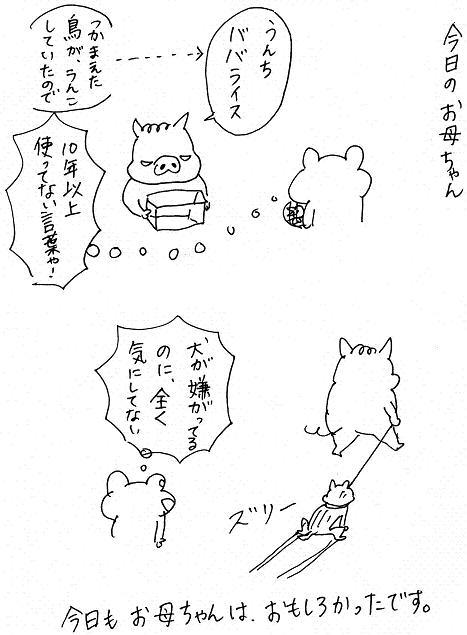 今日のお母ちゃん
うんち
ババライス
つかまえた
鳥が、うんこ
していたので
10年以上
使ってない言葉や!
犬が嫌がってる
のに、全く
気にしてない
ズリー
今日もお母ちゃんは、おもしろかったです。